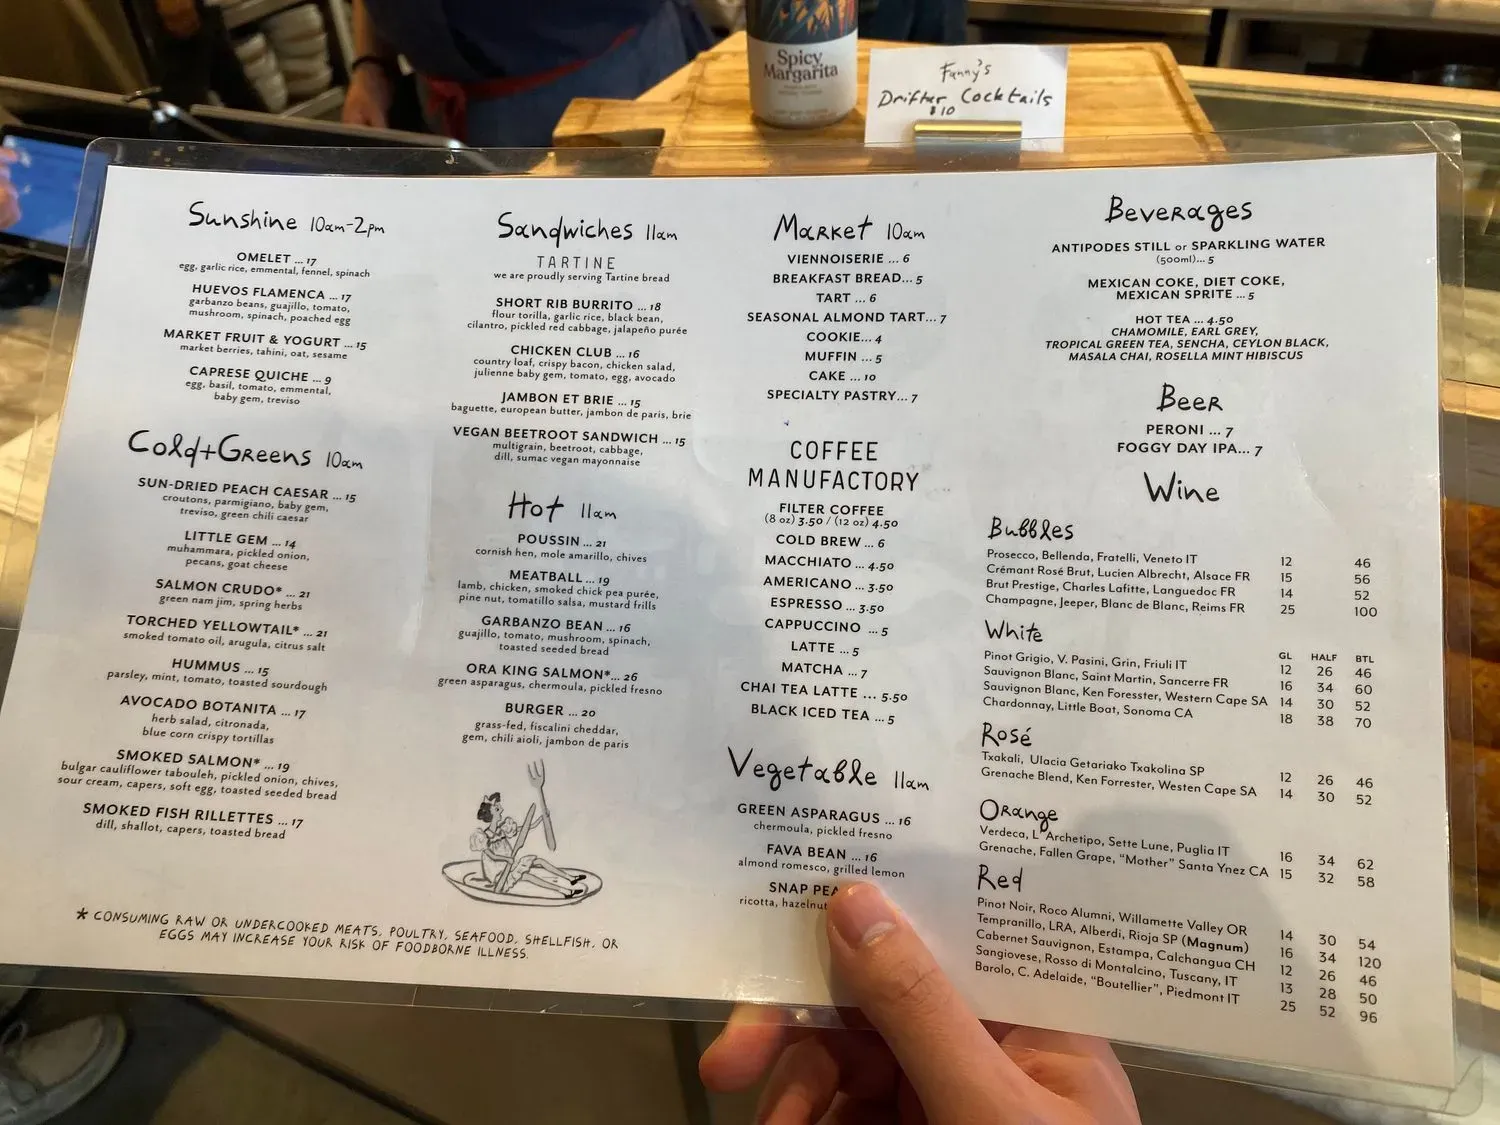 Spicy
Margarita
Fanny's
Drifter Cocktails
$10
Sunshine 10am-2pm
OMELET ... 17
egg, garlic rice, emmental, fennel, spinach
HUEVOS FLAMENCA ... 17
garbanzo beans, guajillo, tomato,
mushroom, spinach, poached egg
MARKET FRUIT & YOGURT ... 15
market berries, tahini, oat, sesame
CAPRESE QUICHE ... 9
egg, basil, tomato, emmental,
baby gem, treviso
Cold+Greens 10am
SUN-DRIED PEACH CAESAR ... 15
croutons, parmigiano, baby gem,
treviso, green chili caesar
LITTLE GEM ... 14
muhammara, pickled onion,
pecans, goat cheese
SALMON CRUDO* ... 21
green nam jim, spring herbs
TORCHED YELLOWTAIL* ... 21
smoked tomato oil, arugula, citrus salt
HUMMUS ... 15
parsley, mint, tomato, toasted sourdough
AVOCADO BOTANITA ... 17
herb salad, citronada,
blue corn crispy tortillas
SMOKED SALMON* ... 19
bulgar cauliflower tabouleh, pickled onion, chives,
sour cream, capers, soft egg, toasted seeded bread
SMOKED FISH RILLETTES ... 17
dill, shallot, capers, toasted bread
* CONSUMING RAW OR UNDERCOOKED MEATS, POULTRY, SEAFOOD, SHELLFISH, OR
EGGS MAY INCREASE YOUR RISK OF FOODBORNE ILLNESS.
Sandwiches 11am
TARTINE
we are proudly serving Tartine bread
SHORT RIB BURRITO ... 18
flour torilla, garlic rice, black bean,
cilantro, pickled red cabbage, jalapeño purée
CHICKEN CLUB ... 16
country loaf, crispy bacon, chicken salad,
julienne baby gem, tomato, egg, avocado
JAMBON ET BRIE ... 15
baguette, european butter, jambon de paris, brie
VEGAN BEETROOT SANDWICH ... 15
multigrain, beetroot, cabbage,
dill, sumac vegan mayonnaise
Hot 11am
POUSSIN ... 21
cornish hen, mole amarillo, chives
MEATBALL ... 19
lamb, chicken, smoked chick pea purée,
pine nut, tomatillo salsa, mustard frills
GARBANZO BEAN ... 16
guajillo, tomato, mushroom, spinach,
toasted seeded bread
ORA KING SALMON*... 26
green asparagus, chermoula, pickled fresno
BURGER ... 20
grass-fed, fiscalini cheddar,
gem, chili aioli, jambon de paris
Market 10am
VIENNOISERIE ... 6
BREAKFAST BREAD... 5
TART ... 6
SEASONAL ALMOND TART... 7
COOKIE... 4
MUFFIN ... 5
CAKE ... 10
SPECIALTY PASTRY... 7
COFFEE
MANUFACTORY
FILTER COFFEE
(8 oz) 3.50 / (12 oz) 4.50
COLD BREW ... 6
MACCHIATO ... 4.50
AMERICANO ... 3.50
ESPRESSO ... 3.50
CAPPUCCINO ... 5
LATTE ... 5
MATCHA ... 7
CHAI TEA LATTE ... 5.50
BLACK ICED TEA ... 5
Vegetable 11am
GREEN ASPARAGUS ... 16
chermoula, pickled fresno
FAVA BEAN ... 16
almond romesco, grilled lemon
SNAP PEA
ricotta, hazelnut
Beverages
ANTIPODES STILL or SPARKLING WATER
(500ml)... 5
MEXICAN COKE, DIET COKE,
MEXICAN SPRITE ... 5
HOT TEA ... 4.50
CHAMOMILE, EARL GREY,
TROPICAL GREEN TEA, SENCHA, CEYLON BLACK,
MASALA CHAI, ROSELLA MINT HIBISCUS
Beer
PERONI ... 7
FOGGY DAY IPA... 7
Wine
Bubbles
Prosecco, Bellenda, Fratelli, Veneto IT 12 46
Crémant Rosé Brut, Lucien Albrecht, Alsace FR 15 56
Brut Prestige, Charles Lafitte, Languedoc FR 14 52
Champagne, Jeeper, Blanc de Blanc, Reims FR 25 100
White GL HALF BTL
Pinot Grigio, V. Pasini, Grin, Friuli IT 12 26 46
Sauvignon Blanc, Saint Martin, Sancerre FR 16 34 60
Sauvignon Blanc, Ken Foresster, Western Cape SA 14 30 52
Chardonnay, Little Boat, Sonoma CA 18 38 70
Rosé
Txakali, Ulacia Getariako Txakolina SP 12 26 46
Grenache Blend, Ken Forrester, Westen Cape SA 14 30 52
Orange
Verdeca, L' Archetipo, Sette Lune, Puglia IT 16 34 62
Grenache, Fallen Grape, "Mother" Santa Ynez CA 15 32 58
Red
Pinot Noir, Roco Alumni, Willamette Valley OR 14 30 54
Tempranillo, LRA, Alberdi, Rioja SP (Magnum) 16 34 120
Cabernet Sauvignon, Estampa, Calchangua CH 12 26 46
Sangiovese, Rosso di Montalcino, Tuscany, IT 13 28 50
Barolo, C. Adelaide, "Boutellier", Piedmont IT 25 52 96